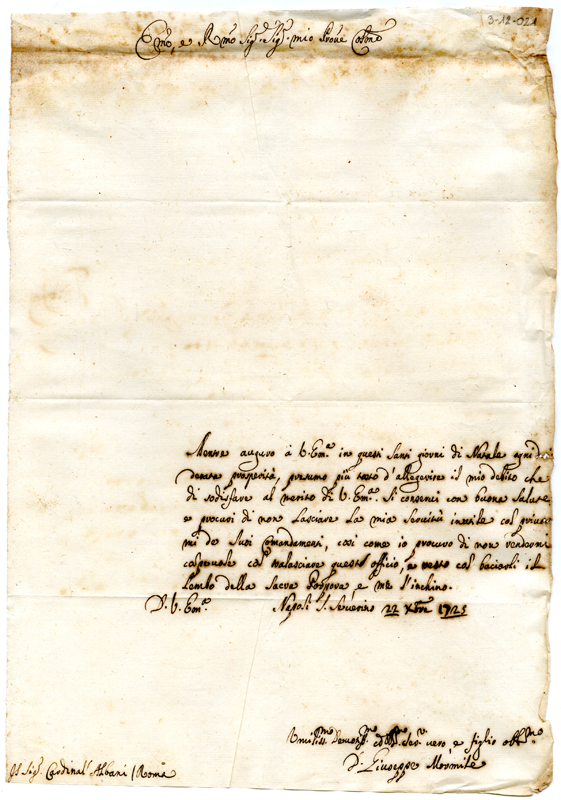 3-12-021
Emo, e Rmo Sigr. Sigr. mio Prone Colmo
Mentre auguro à V. Emª. in questi Santi giorni di Natale ogni
derata prosperità, presumo più tosto d'allegerire il mio debito che
di sodisfare al merito di V. Emª. Si conservi con buona salute
e procuri di non lasciare la mia Servitù inutile col privar
mi de Suoi Comandamenti, così come io procuro di non rendermi
colpevole col tralasciare questo officio, e resto col baciarli il
Lembo della Sacra Porpora, e me l'inchino.
D. V. Emª. Napoli S. Severino 22 Xbre 1725
Umiliss.mo Devotiss.mo ed Serr. vero, e figlio obb.mo
D. Giuseppe Mormile
Sigr. Cardinal' Albani / Roma